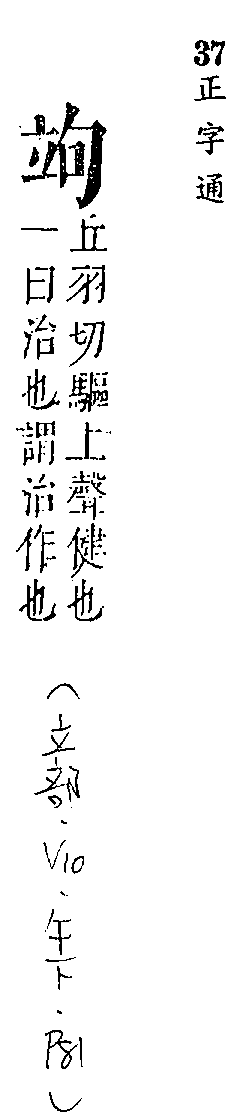 37正字通
竘
丘羽切驅上聲健也
一曰治也謂治作也
(立部.V10.午下.P81)